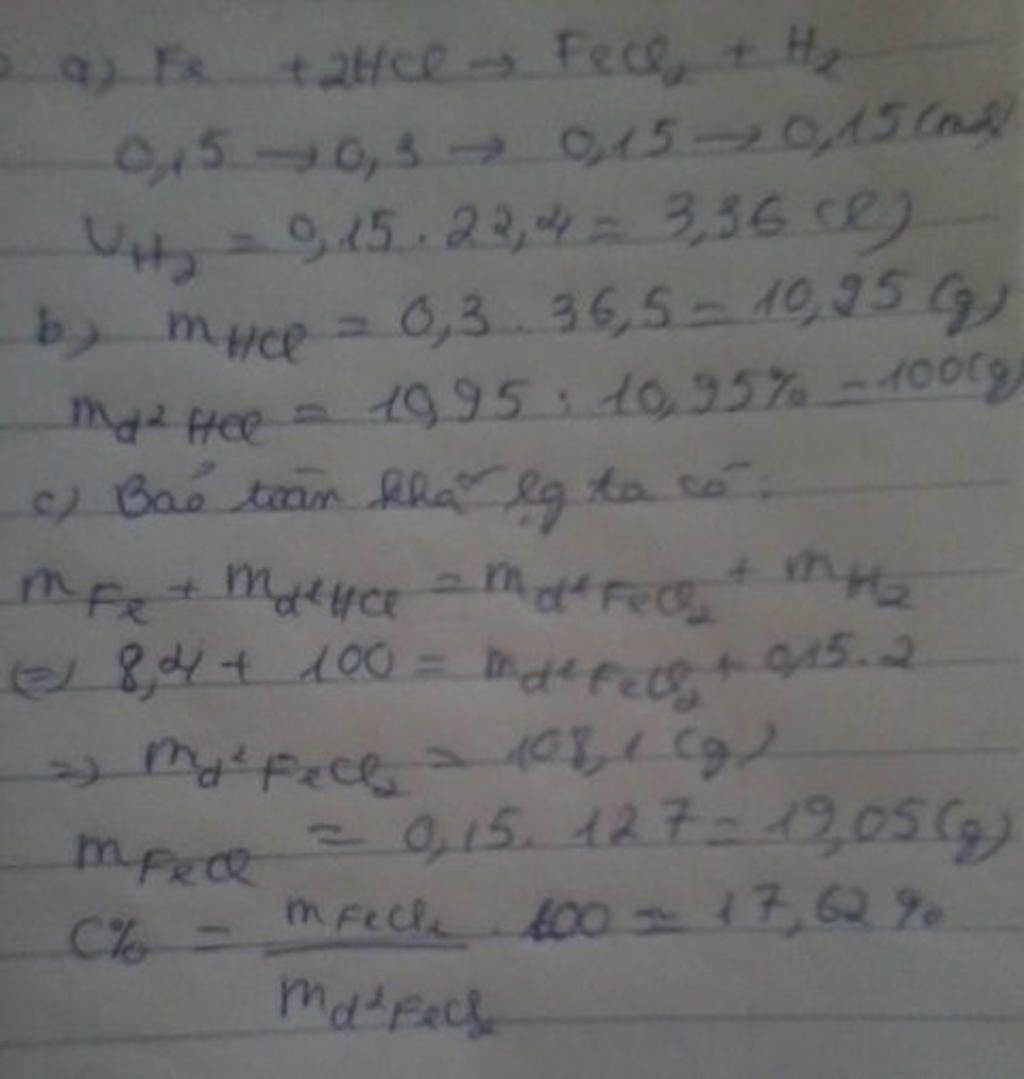 a) Fe + 2HCl → FeCl₂ + H₂
0,15 → 0,3 → 0,15 → 0,15 (mol)
V_H₂ = 0,15 . 22,4 = 3,36 (l)
b) m_HCl = 0,3 . 36,5 = 10,95 (g)
m_d² HCl = 10,95 : 10,95% = 100 (g)
c) Bảo toàn khố lg ta có :
m_Fe + m_d² HCl = m_d² FeCl₂ + m_H₂
(=) 8,4 + 100 = m_d² FeCl₂ + 0,15 . 2
=> m_d² FeCl₂ = 108,1 (g)
m_FeCl = 0,15 . 127 = 19,05 (g)
C% = m_FeCl₂ / m_d² FeCl₂ . 100 = 17,62 %